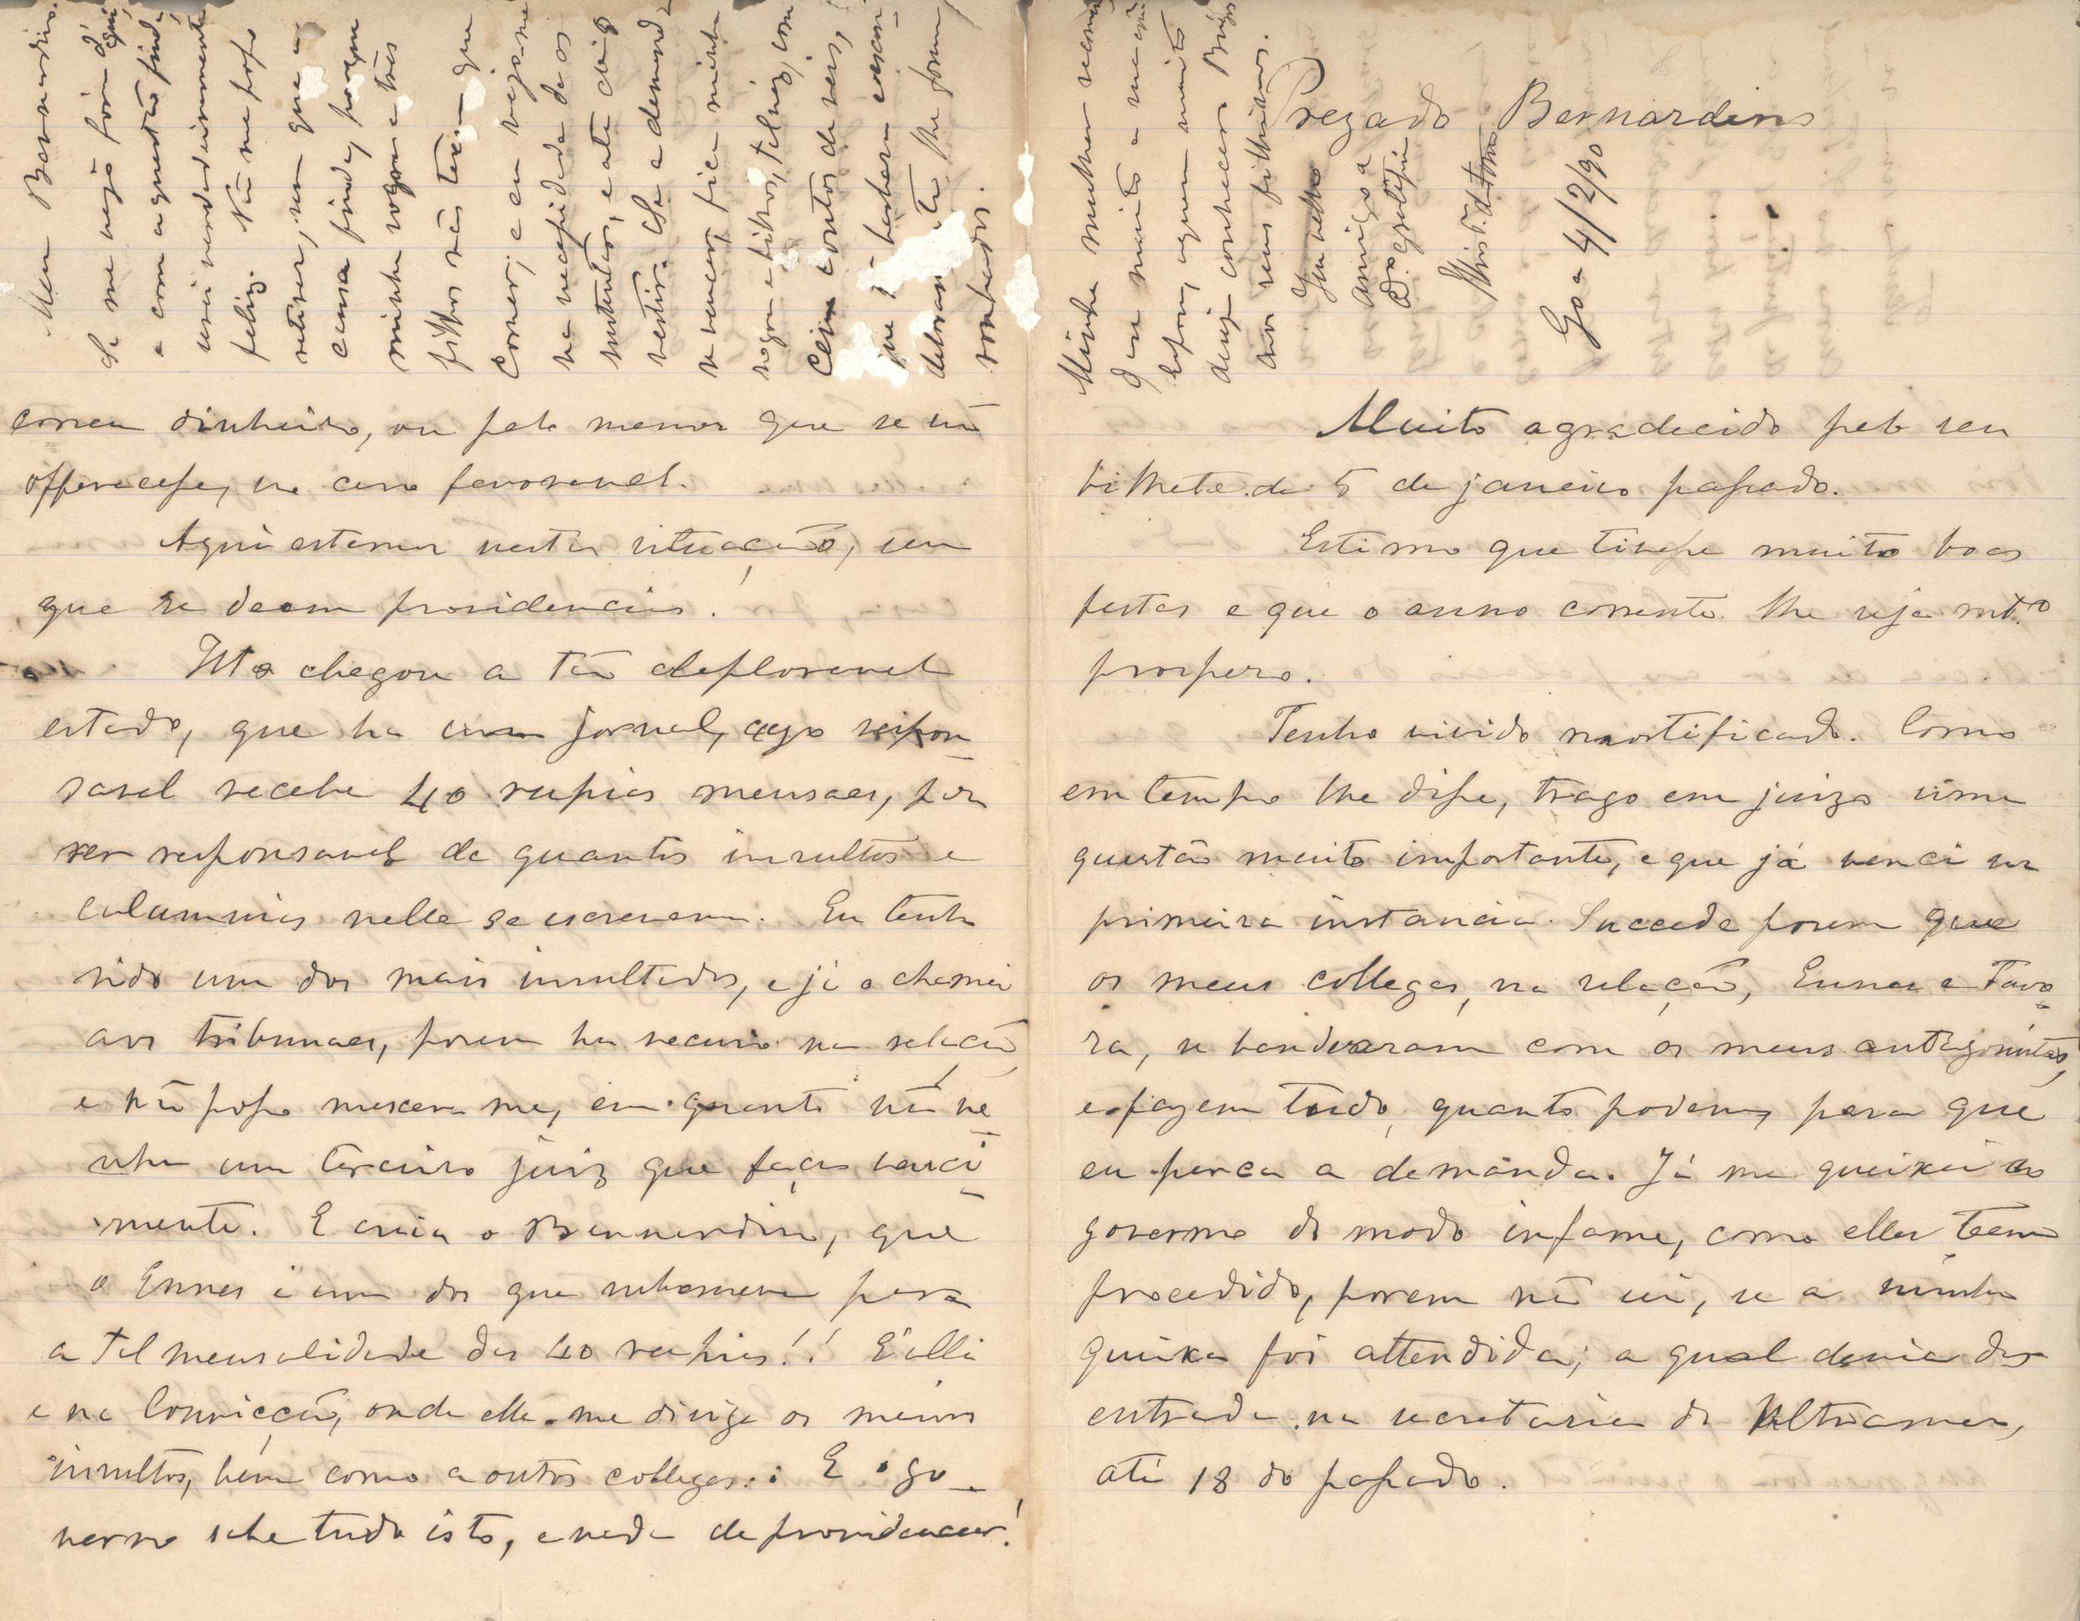 Prezado Bernardino
Muito agradecido pelo seu
bilhete de 5 de janeiro passado.
Estimo que tivesse muito boas
festas e que o anno corrente lhe seja mto
prospero.
Tenho vivido mortificado. Como
em tempo lhe disse, trago em juizo uma
questão muito importante, e que já venci na
primeira instancia. Succede porem que
os meus collegas, na relação, Ennes e Tavo-
ra, se bandearam com os meus antagonistas,
e fazem tudo, quanto podem, para que
eu perca a demanda. Já me queixei ao
governo do modo infame, como elles teem
procedido, porem não sei, se a minha
queixa foi attendida; a qual devia dar
entrada na secretaria do Ultramar,
até 18 do passado.
correu dinheiro, ou pelo menos que se não
offerecesse, no caso favoravel.
Aqui estamos nesta situação, sem
que se deem providencias!
Isto chegou a tão deploravel
estado, que ha um jornal, cujo respon-
savel recebe 40 rupias mensaes, por
ser responsavel de quantos insultos e
calumnias nelle se escrevem. Eu tenho
sido um dos mais insultados, e já o chamei
aos tribunaes, porem ha recurso na relação,
e não posso mexer me, em quanto não ve-
nha um terceiro juiz que faça venci-
mento. E creia o Bernardino, que
o Ennes é um dos que subscrevem para
a tal mensalidade das 40 rupias!! É alli
e na Convicção, onde elle me dirige os meus
insultos, bem como a outros collegas. E o go-
verno sabe tudo isto, e nada de providencias!
Meu Bernardino.
se me vejo fóra d'aqui
e com a questão finda
serei verdadeiramente
feliz. Não me posso
retirar, sem que a
causa finde, porque
minha sogra e tres
filhos não teem que
comer; e eu vejo-me
na necessidade de os
sustentar, e até
vestir. Se a demanda
se vencer, fica minha
sogra e filhos, talvez, com
cem contos de reis,
que
lhe foram
roubados.
Minha mulher recom-
da-se muito a sua
esposa, a quem muito
deseja conhecer. Beijos
aos seus filhinhos.
Seu velho
amigo e
Goa 4/2/90